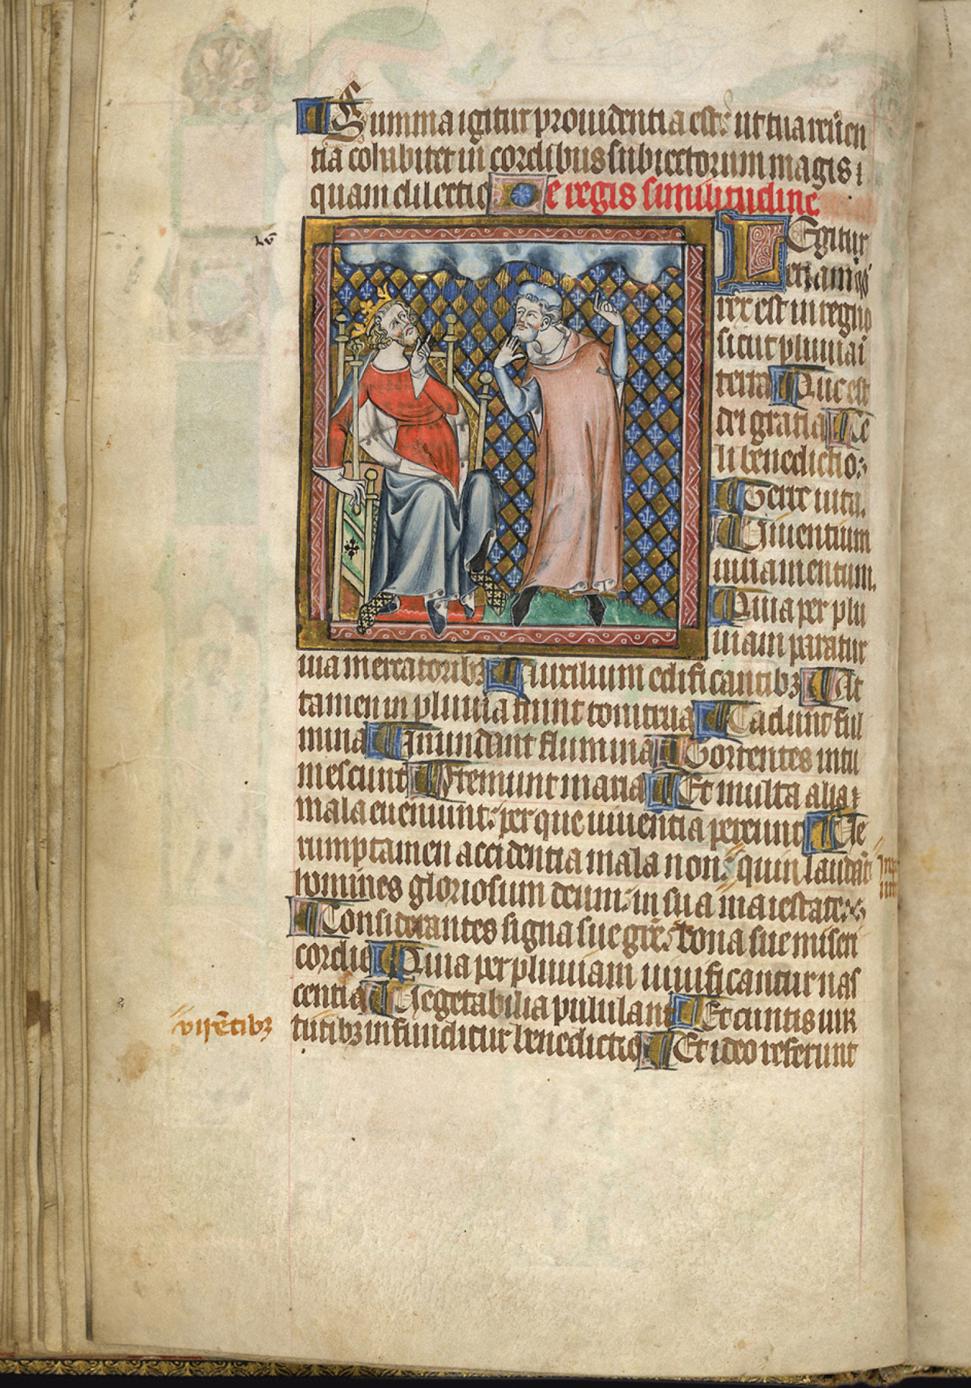 Summa igitur prouidentia est: ut tua reuͤen
tia cohibitet in cordibus subiectorum magis
quam dilectio e regis similitudine
LEgitur
etiam qͦ
rex est in regno
sicut pluuia ī
terra Que est
dei gratia Ce
li benedictio:
Terre uita.
Uiuentium
iuuamentum.
Quia per plu
uiam paratur
uia mercatoribꝫ Auxilium edificantibꝫ At
tamen in pluuia fiunt tonitrua Cadunt ful
mina Inundant flumina Torrentes intu
mescunt Fremunt maria Et multa alia
mala eueniunt: per que uiuentia pereunt Ue
rumptamen accidentia mala non: quin laudēt
homines gloriosum deum: in sua maiestate:
Considerantes signa sue grē: dona sue miseri
cordie Quia per pluuiam uiuificantur nas
centia Uegetabilia pululant Et cuntis uir
uirētibꝫ
tutibꝫ infunditur benedictio Et ideo referunt